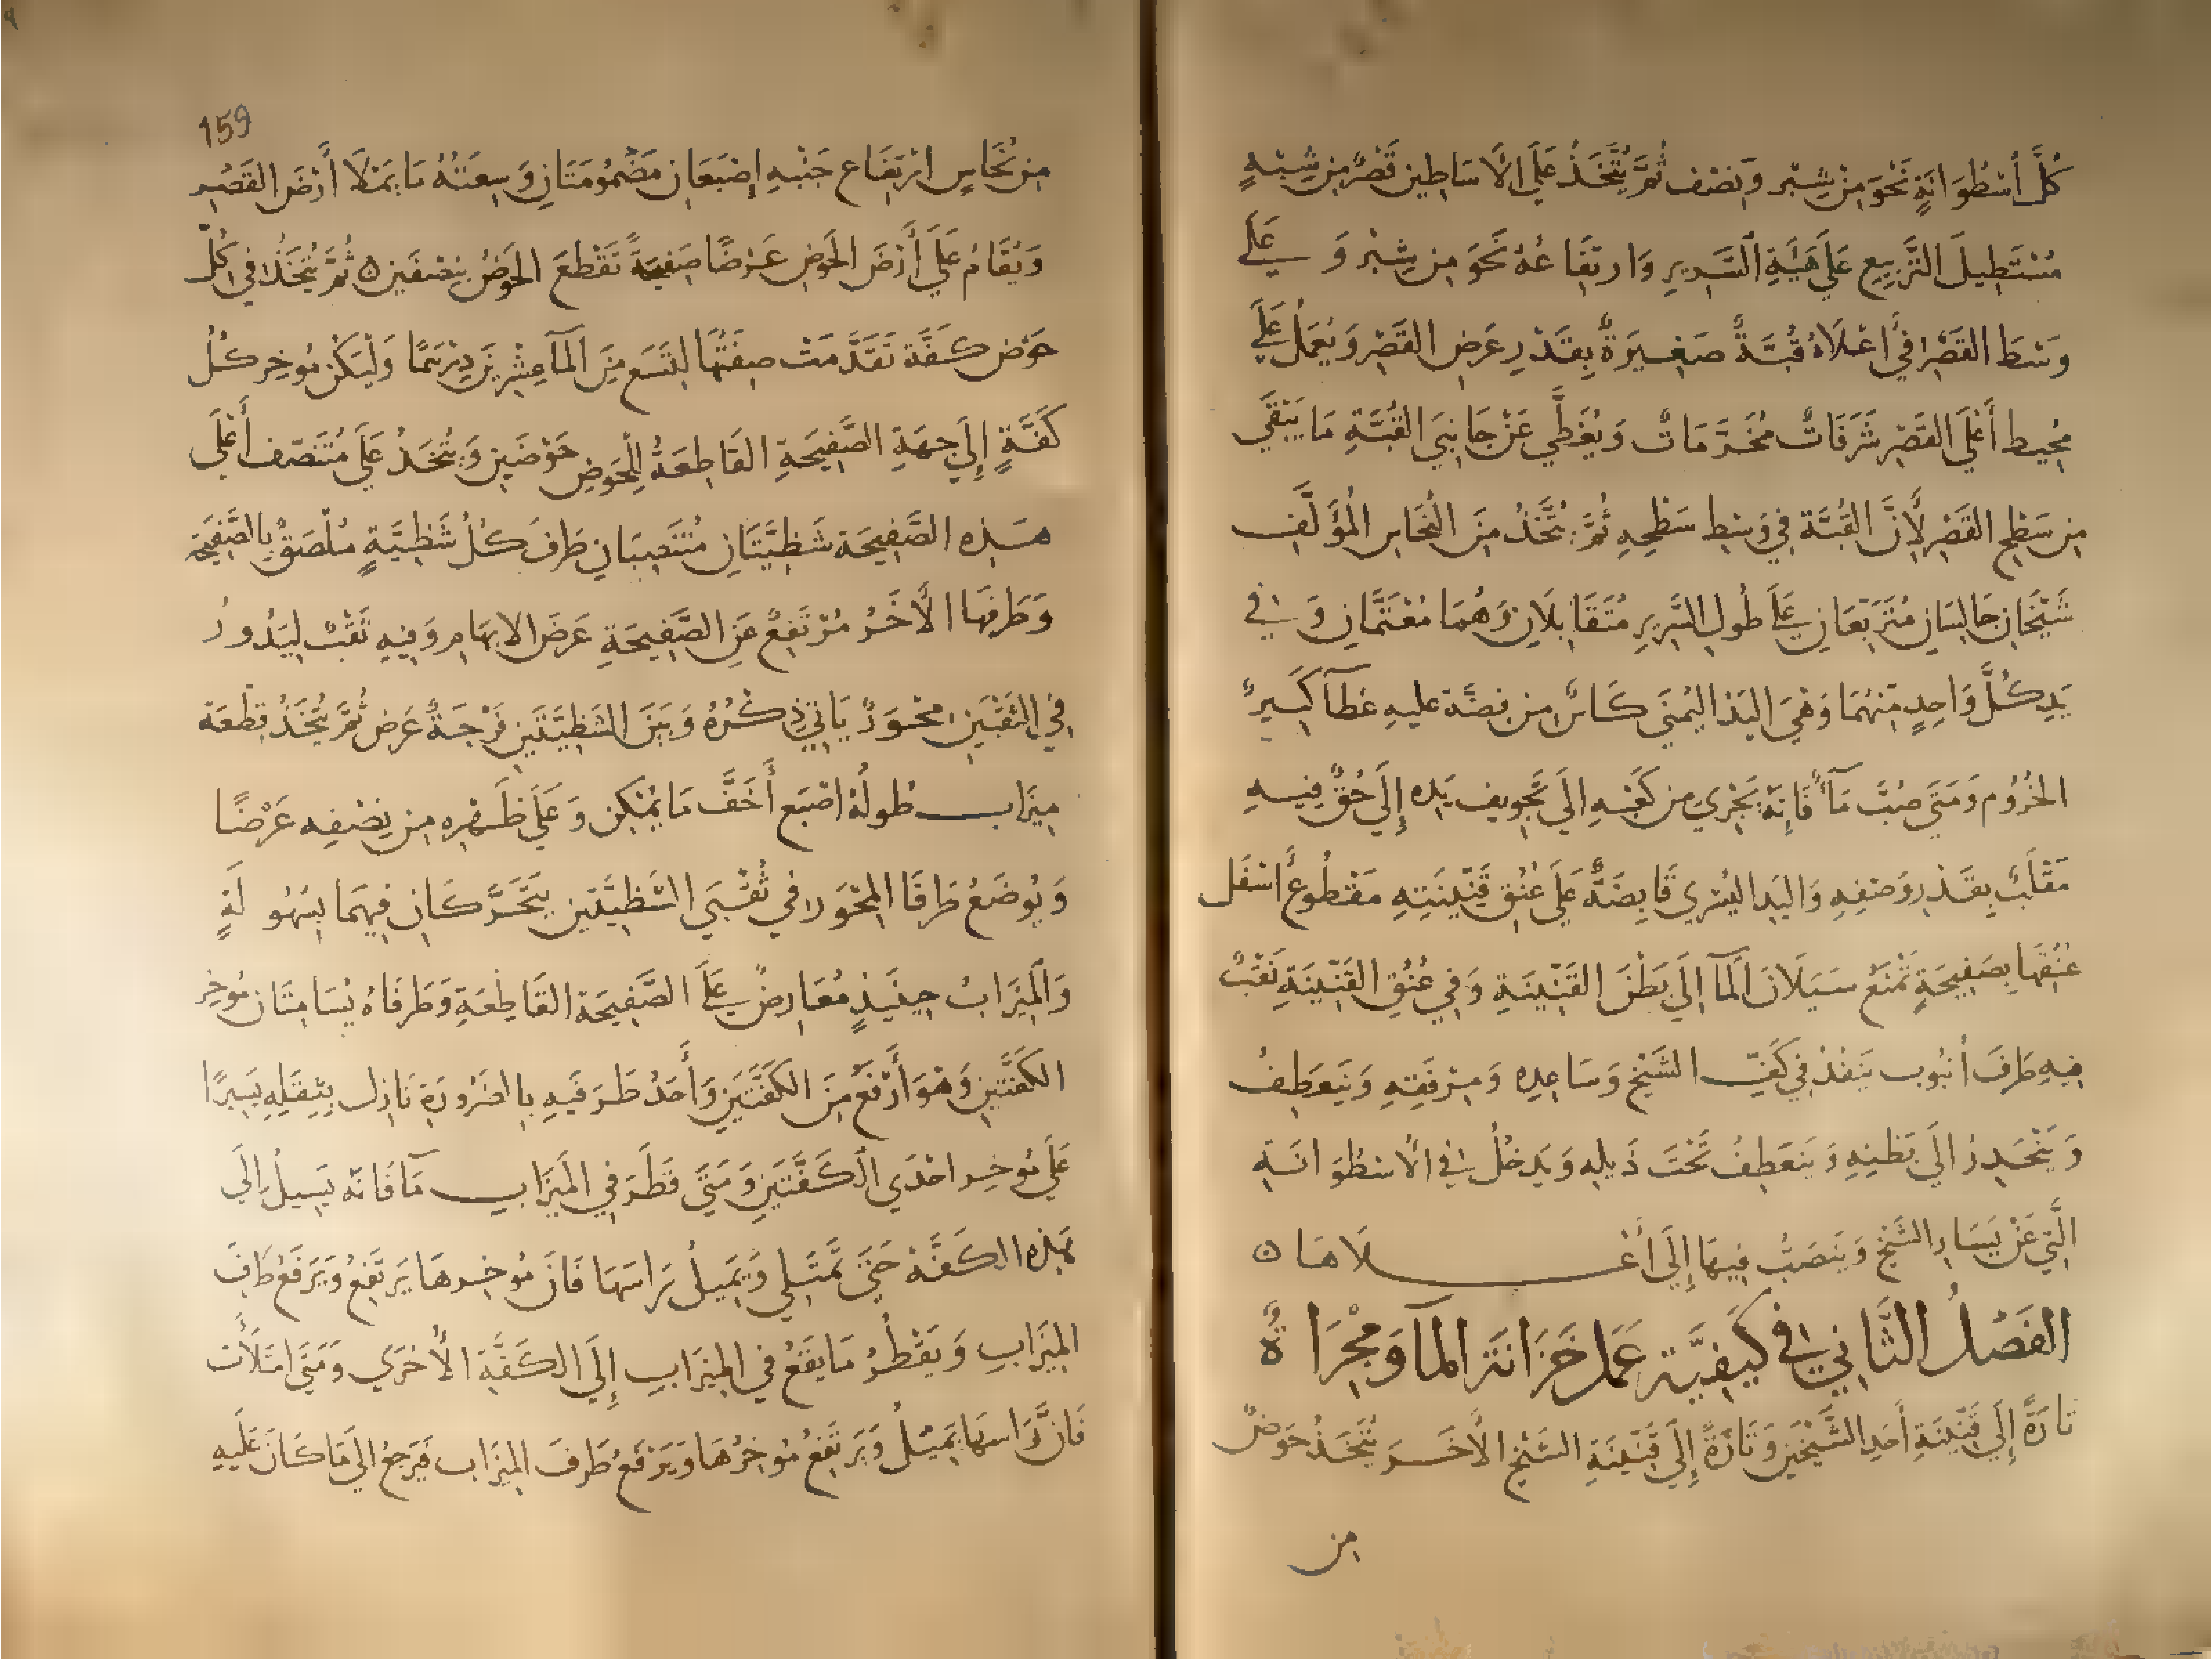 كُلّ أُسْطُوَانَةٍ نَحْوَ مِنْ شِبْرِ وَنصْف ثُمَّ يُتَّخَذُ عَلَى الأَسَاطِينِ قَصْرٌ مِنْ شَبَهٍ
مُسْتَطِيلَ التَّرْبِيعِ عَلَى هَيْئَةِ السَّرِيرِ وَارتِفَاعُهُ نَحْوَ مِن شِبْر وَعَلَى
وَسَطَ القَصْرِ فِي أَعْلَاهُ قُبَّةً صَغِيرَةً بِقَدْرِ عَرَضِ القَصْرِ وَيُعْمَلُ عَلَى
مُحِيط أَعْلَى القَصْرِ شُرَفَاتٌ مُخَرَّمَاتٌ وَيُغَطَّي عَنْ جَانِبَيَ القُبَّةِ مَا يَبْقَي
مِن سَطْحِ القَصْرِ لأَنَّ القُبَّةَ فِي وَسَطِ سَطْحِهِ ثُمَّ يُتَّخَذُ مِنَ النُّحَاسِ المُؤَلَّفِ
شَيْخَانِ جَالِسَانِ مُتَرَبِّعَانِ عَلَى طُولِ السَّرِيرِ مُتَقَابِلَانِ وَهُمَا مُعْتَمَّانِ وَفِي
يَدِ كُلّ وَاحِدٍ مِنْهُمَا وَهْيَ اليَدُ اليُمْنَي كَاسٌ مِن فِضَّة عليهِ غطَآ كَبِيرُ
الخُرُوم وَمَتَى صُبَّ مَآءٌ فَإِنَّهُ يَجْرِي مِن كَفِّهِ إلَى تَجْوِيف يَدِه إِلَى حُقٍّ فِيهِ
مَقْلَبٌ بِقَدْرِ وَصْفِهِ وَاليَدِ اليُسْرَي قَابِضَةٌ عَلَى عُنُق قَنِّينَتِهِ مَقْطُوع أَسْفَل
عُنُقهَا بِصَفِيحَةٍ تَمْنَعُ سَيَلَانَ المَآ إِلَى بَطْنَ القَنِّينَةِ وَفِي عُنُقِ القَنِّينَةِ ثَقْبٌ
فِيهِ طَرَفَ أُنْبُوب يَنفُذُ فِي كَفِّ الشَّيْخِ وَسَاعِدِهِ وَمِرْفَقِهِ وَيَنعَطِفُ
وَيَنْحَدِرُ إلَى بَطْنِهِ وَيَنعَطِفُ تَحْتَ ذَيلِهِ وَيَدخُلُ فِي الأُسْطُوَانَةِ
الَّتِي عَنْ يَسَارِ الشَّيْخِ وَيَنصَبُّ فِيهَا إِلَى أَعْلَاهَا ٥
الفَصْلُ الثَّانِي فِي كَيْفِيَّة عَمَل خَزَانَة المَآ وَمجْرَاهُ
تَارَةً إِلَى قَنِّينَةِ أَحَدِ الشَّيْخَيْنِ وَتَارَةً إِلَى قَنِّينَةِ الشَّيْخِ الأَخَرِ يُتَّخَذُ حَوْضٌ
مِن
159
مِن نُحَاسٍ ارْتِفَاع جَنْبِهِ إِصْبَعَانِ مَضْمُومَتَانِ وَسِعَتُهُ مَا يَمْلَا أَرْضَ القَصْرِ
وَيُقَامُ عَلَى أَرْضَ الحَوْضِ عَرْضًا صَفِيحَةً تَقْطَعَ الحَوْضُ بِنِصْفَينِ ٥ ثُمَّ يُتَّخَذُ فِي كُلّ
حَوْض كَفَّة تَقَدَّمَتْ صِفَتُهَا لِتَسَع مِنَ المَآ عِشْرِينَ دِرْهَمًا وَلْيَكُنْ مُوخِر كُلّ
كَفَّةٍ إِلَى جِهَةِ الصَّفِيحَةِ القَاطِعَةُ لِلْحَوْضِ حَوْضَيْنِ وَيُتَّخَذُ عَلَى مُنْتَصَف أَعْلَى
هَذِهِ الصَّفِيحَة شَظِيَّتَانِ مُنْتَصِبَانِ طَرَفَ كُلّ شَظِيَّةٍ مُلْصَقٌ بِالصَّفِيحَة
وَطَرَفهَا الأَخَرُ مُرْتَفِعٌ عَنِ الصَّفِيحَةِ عَرَضَ الابهَامِ وَفِيهِ ثَقْبٌ لِيَدُورُ
فِي الثَّقْبَيْنِ مِحْوَرٌ يَاتِي ذِكْرُهُ وَبَيْنَ الشَّظِيَّتَيْنِ فَرْجَةٌ عَرَض ثُمَّ يُتَّخَذُ قِطْعَة
مِيزَاب طُولُهُ اصْبَع أَخَفَّ مَا يُمْكِن وَعَلَى ظَهْرِهِ مِن نِصْفِه عَرْضًا
وَيُوضَعُ طَرَفَا المِحْوَر فِي ثُقْبَي الشَّظِيَّتَيْنِ يَتَحَرَّكَانِ فِيهِمَا بِسُهُولَةٍ
وَالمِيزَابُ حِينَيذٍ مُعَارِضٌ عَلَى الصَّفِيحَة القَاطِعَةِ وَطَرَفَاهُ يُسَامِتَانِ مُوخِر
الكَفَّتَيْنِ وَهْوَ أَرْفَعُ مِنَ الكَفَّتَيْنِ وَأَحَدُ طَرَفَيهِ بِاالضَرُورَةِ نَازِل بِثِقْلِهِ يَسِيرًا
عَلَى مُوخِر احْدَى الكَفَّتَيْنِ وَمَتَى قَطَرَ فِي المِيزَابِ مَآ فَانَّه يَسِيلُ إلَى
هَذِه الكَفَّة حَتَّى تَمْتَلِي وَيَمِيلُ رَاسهَا فَانَ مُوخِرهَا يَرتَفِعُ وَيَرفَعُ طَرَفَ
المِيزَابِ وَيَقْطُرُ مَا يَقَعُ فِي المِيزَابِ إِلَى الكَفَّةِ الأُخْرَي وَمَتَى امْتَلَأَت
فَانَّ رَاسهَا يَمِيلُ وَيَرتَفِعُ مُوخِرُهَا وَيَرْفَعُ طَرَفَ المِيزَاب فَيَرجعُ الَى مَا كَانَ عَلَيهِ